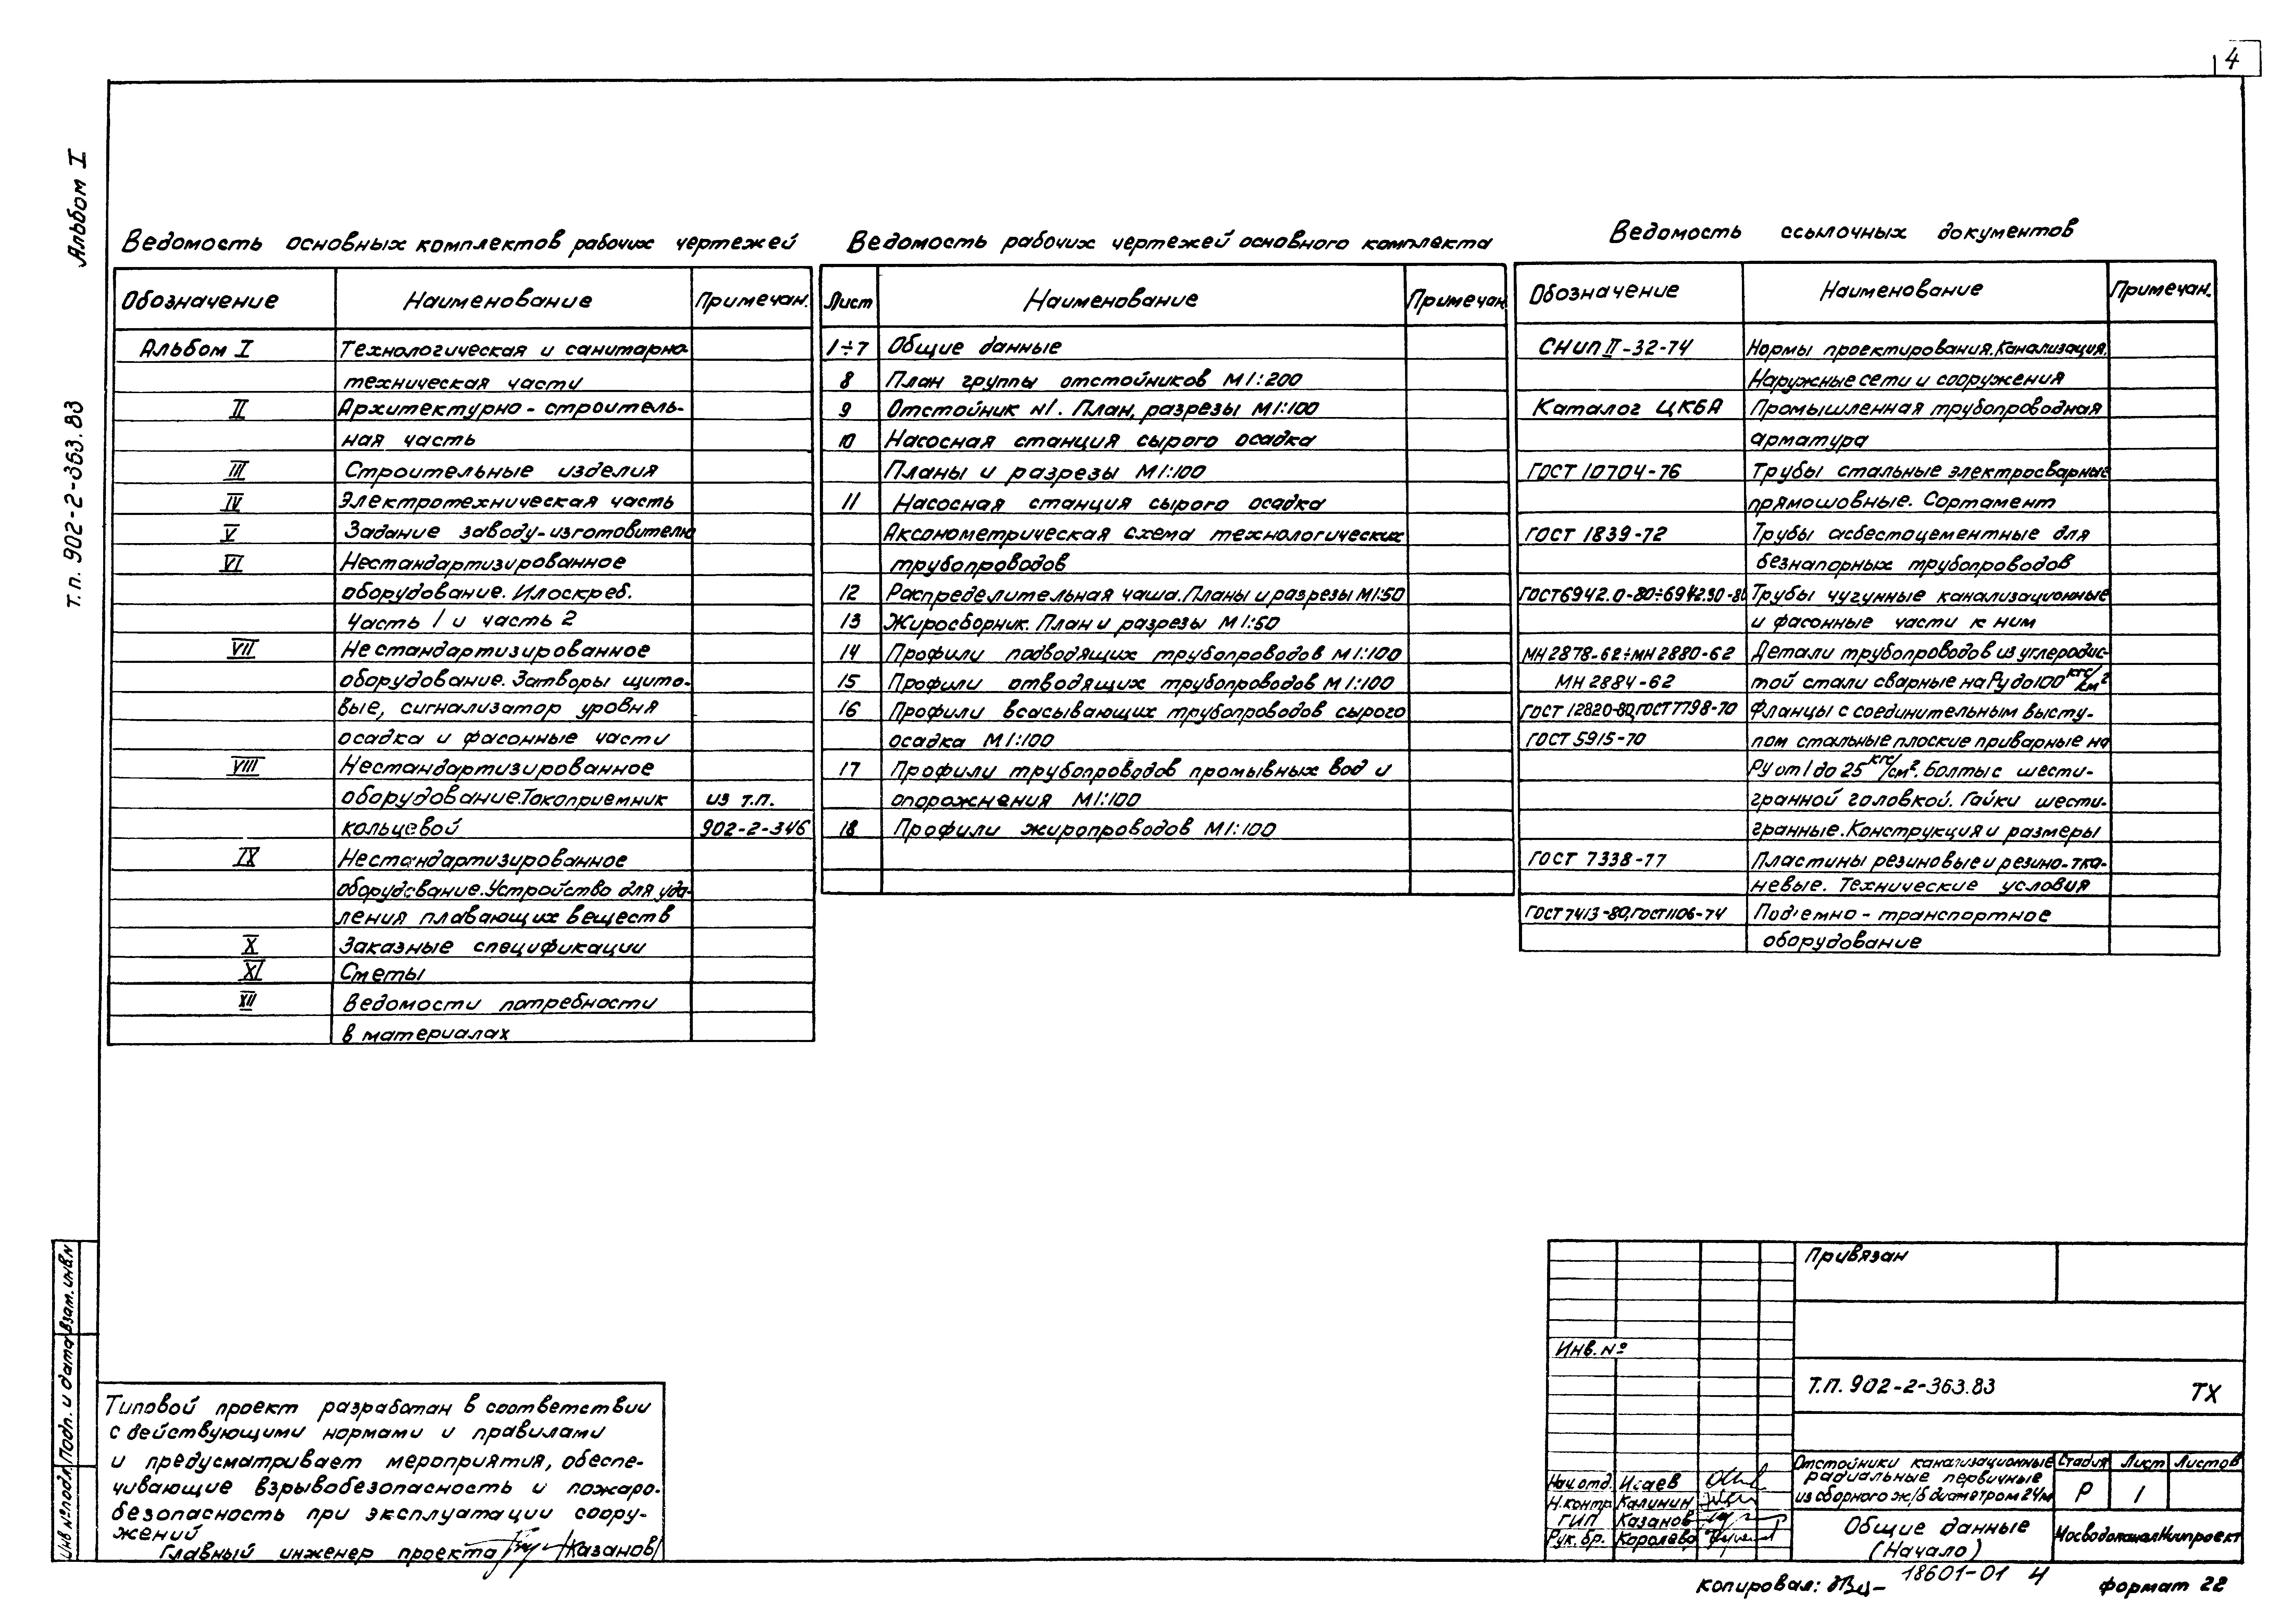 4
Альбом I
т.п. 902-2-363.83
Ведомость основных комплектов рабочих чертежей
Обозначение Наименование Примечан.
Альбом I Технологическая и санитарно-
техническая части
II Архитектурно-строитель-
ная часть
III Строительные изделия
IV Электротехническая часть
V Задание заводу-изготовителю
VI Нестандартизированное
оборудование. Илоскреб.
Часть 1 и часть 2
VII Нестандартизированное
оборудование. Затворы щито-
вые, сигнализатор уровня
осадка и фасонные части
VIII Нестандартизированное
оборудование. Токоприемник из т.п.
кольцевой 902-2-346
IX Нестандартизированное
оборудование. Устройство для уда-
ления плавающих веществ
X Заказные спецификации
XI Сметы
XII Ведомости потребности
в материалах
Ведомость рабочих чертежей основного комплекта
Лист Наименование Примечан.
1÷7 Общие данные
8 План группы отстойников М1:200
9 Отстойник №1. План, разрезы М1:100
10 Насосная станция сырого осадка
Планы и разрезы М1:100
11 Насосная станция сырого осадка
Аксонометрическая схема технологических
трубопроводов
12 Распределительная чаша. Планы и разрезы М1:50
13 Жиросборник. План и разрезы М1:50
14 Профили подводящих трубопроводов М1:100
15 Профили отводящих трубопроводов М1:100
16 Профили всасывающих трубопроводов сырого
осадка М1:100
17 Профили трубопроводов промывных вод и
опорожнения М1:100
18 Профили жиропроводов М1:100
Ведомость ссылочных документов
Обозначение Наименование Примечан.
СНиП II-32-74 Нормы проектирования. Канализация.
Наружные сети и сооружения
Каталог ЦКБА Промышленная трубопроводная
арматура
ГОСТ 10704-76 Трубы стальные электросварные
прямошовные. Сортамент
ГОСТ 1839-72 Трубы асбестоцементные для
безнапорных трубопроводов
ГОСТ 6942.0-80÷6942.30-80 Трубы чугунные канализационные
и фасонные части к ним
МН 2878-62÷МН 2880-62 Детали трубопроводов из углеродис-
МН 2884-62 той стали сварные на Ру до 100 кгс/см²
ГОСТ 12820-80, ГОСТ 7798-70 Фланцы с соединительным высту-
ГОСТ 5915-70 пом стальные плоские приварные на
Ру от 1 до 25 кгс/см². Болты с шести-
гранной головкой. Гайки шести-
гранные. Конструкция и размеры
ГОСТ 7338-77 Пластины резиновые и резино-тка-
невые. Технические условия
ГОСТ 7413-80, ГОСТ 1106-74 Подъемно-транспортное
оборудование
Типовой проект разработан в соответствии
с действующими нормами и правилами
и предусматривает мероприятия, обеспе-
чивающие взрывобезопасность и пожаро-
безопасность при эксплуатации соору-
жений
Главный инженер проекта /Казанов/
Инв № подл. Подп. и дата Взам. инв. №
Привязан
Инв. №
Т.П. 902-2-363.83 ТХ
Нач. отд. Исаев
Н. контр. Калинин
ГИП Казанов
Рук. бр. Королева
Отстойники канализационные
радиальные первичные
из сборного ж/б диаметром 24м
Стадия Лист Листов
Р 1
Общие данные
(Начало)
МосводоканалНИИпроект
Копировал:
18601-01 4
формат 22